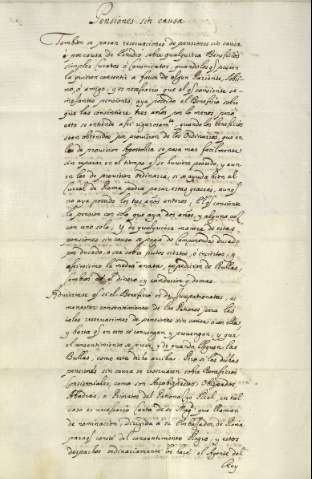 Pensiones sin causa
Tambien se pasan reservaciones de pensiones sin causa
ó por causa de Estudio sobre qualesquiera Beneficios
simples, curatos ó
la quieren consentir a favor de algun Pariente, sobri-
no, ó amigo; y es necesario que el q consiente se-
mejantes pensiones aya poseido el Beneficio sobre
que las consintiere tres años por lo menos, pero
esto se entiende quando los beneficios
sean obtenidos por provision de los Ordinarios, que en
los de provision Apostolica se pasa mas facilmente
sin reparar en el tiempo q se huviere poseido, y aun
en los de provision ordinaria, si se ayuda bien al
de Roma podra pasar estas gracias, aunq
no aya poseido los tres años enteros. consiente
la pension con solo que aya dos años, y alguna vez
con uno solo; Y de qualquiera manera de estas
pensiones sin causa se paga de Componenda ducado
por ducado, ó sea sobre frutos ciertos, ó inciertos, y
asimismo la media annata, expedicion de Bullas,
cambio del dinero, y conducion, y demas.
Adviertase q si el Beneficio es de Juspatronatus, es
menester consentimiento de los Patrones para las
tales reservaciones de pensiones sin causa
y hasta q en esto se convengan, y que
el consentimiento se preste, y de quando lleguen las
Bullas, como esta dicho arriba. Pero si las dichas
pensiones sin causa se reservaren sobre Beneficios
Consistoriales, como son Arzobispados, Obispados,
Abadias, ó Prioratos del Patronazgo Real, en tal
caso es necesario Carta de su Magd. que llaman
de nominacion, dirigida a su Embaxador de Roma
para q conste del consentimiento Regio, y estos
despachos ordinariamente los hace el Agente del
Rey